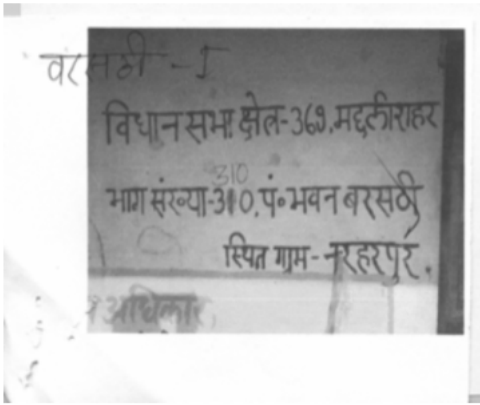 बरसठी - I
विधान सभा क्षेत्र-369, मछलीशहर
310
भाग संख्या-310, पं॰ भवन बरसठी
स्थित ग्राम- नरहरपुर.
अधिकार